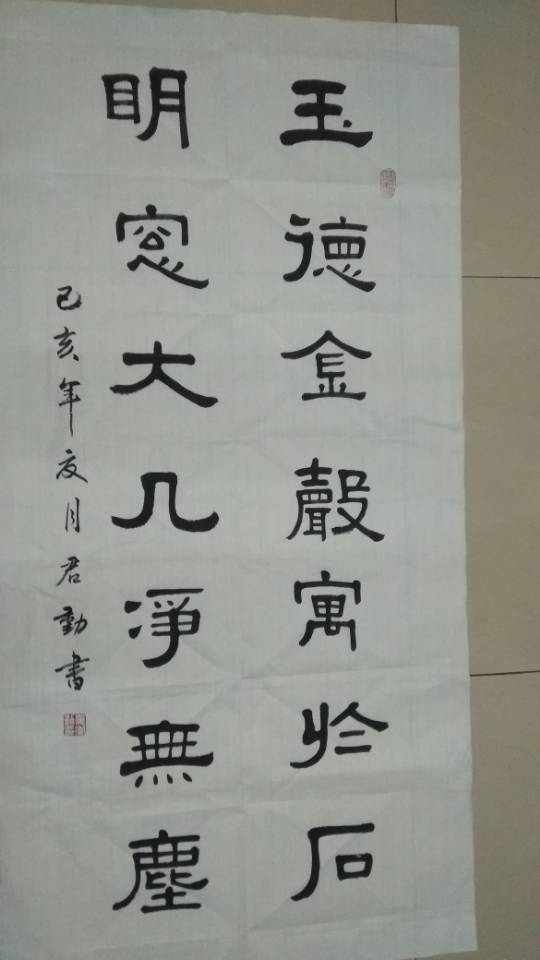 玉德金聲寓於石
明窓大几淨無塵
己亥年夏月君勤書